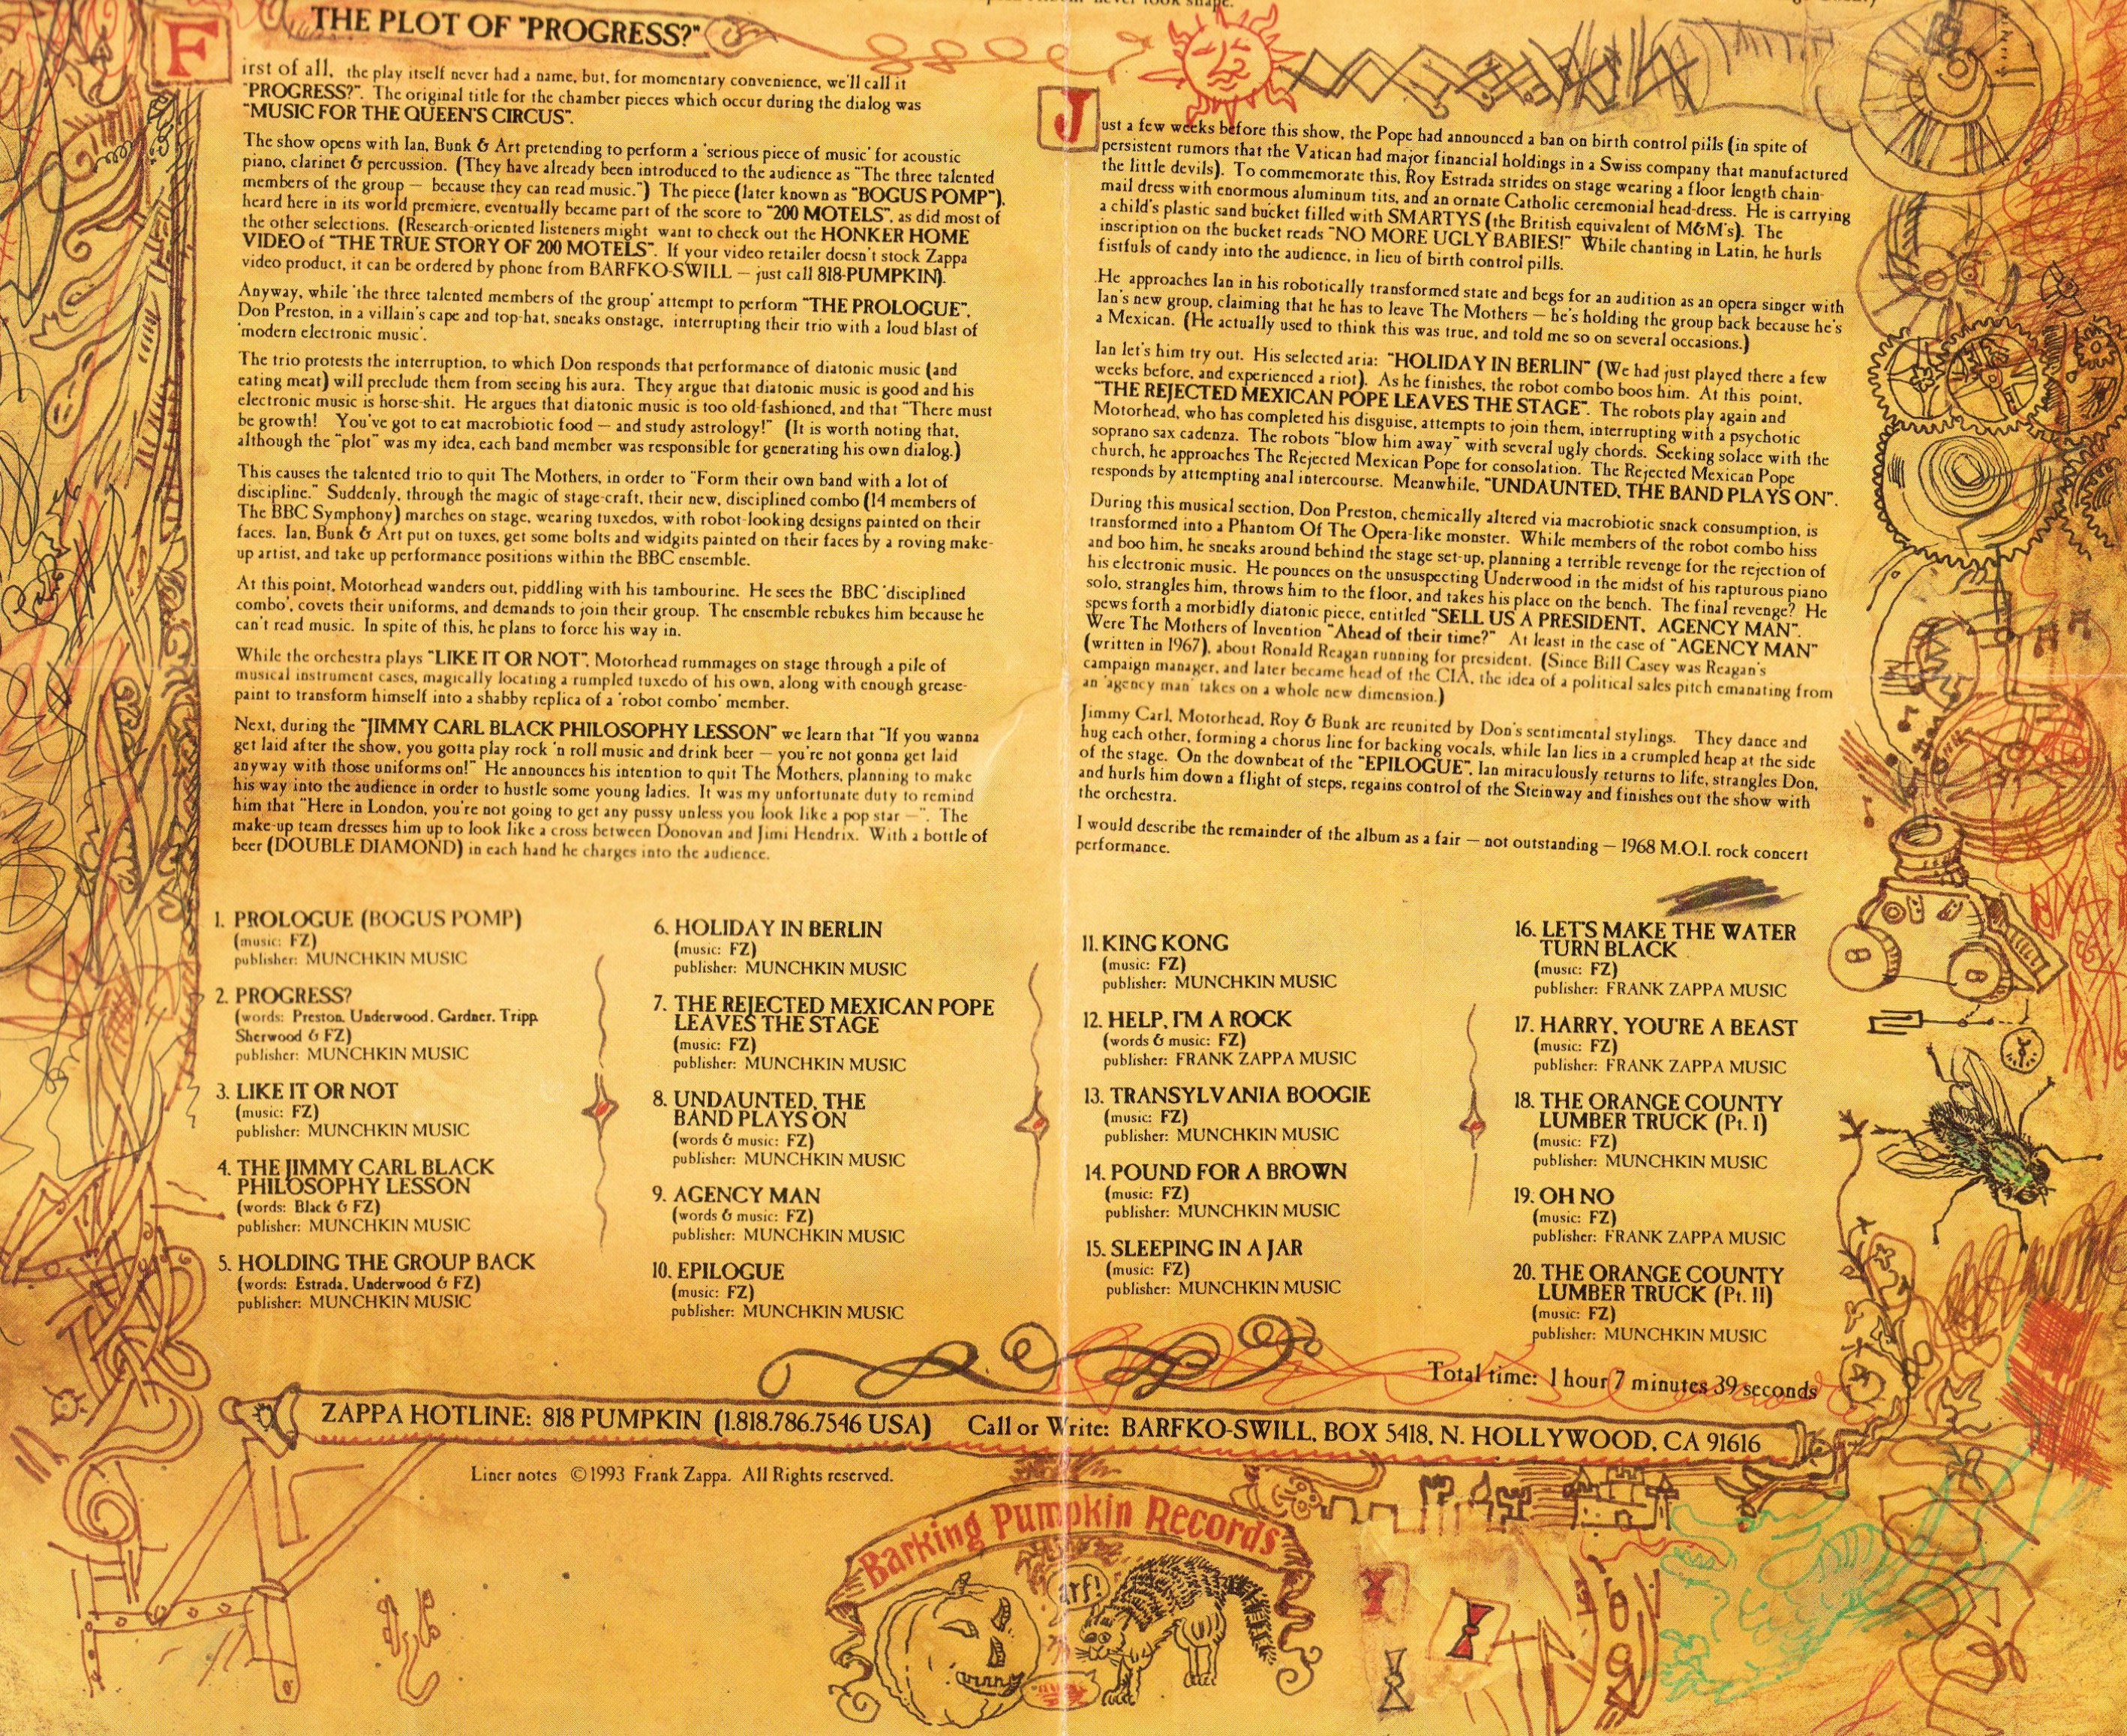 THE PLOT OF "PROGRESS?"
First of all, the play itself never had a name, but, for momentary convenience, we'll call it
"PROGRESS?". The original title for the chamber pieces which occur during the dialog was
"MUSIC FOR THE QUEEN'S CIRCUS".
The show opens with Ian, Bunk & Art pretending to perform a 'serious piece of music' for acoustic
piano, clarinet & percussion. (They have already been introduced to the audience as "The three talented
members of the group — because they can read music.") The piece (later known as "BOGUS POMP"),
heard here in its world premiere, eventually became part of the score to "200 MOTELS", as did most of
the other selections. (Research-oriented listeners might want to check out the HONKER HOME
VIDEO of "THE TRUE STORY OF 200 MOTELS". If your video retailer doesn't stock Zappa
video product, it can be ordered by phone from BARFKO-SWILL — just call 818-PUMPKIN).
Anyway, while 'the three talented members of the group' attempt to perform "THE PROLOGUE",
Don Preston, in a villain's cape and top-hat, sneaks onstage, interrupting their trio with a loud blast of
'modern electronic music'.
The trio protests the interruption, to which Don responds that performance of diatonic music (and
eating meat) will preclude them from seeing his aura. They argue that diatonic music is good and his
electronic music is horse-shit. He argues that diatonic music is too old-fashioned, and that "There must
be growth! You've got to eat macrobiotic food — and study astrology!" (It is worth noting that,
although the "plot" was my idea, each band member was responsible for generating his own dialog.)
This causes the talented trio to quit The Mothers, in order to "Form their own band with a lot of
discipline." Suddenly, through the magic of stage-craft, their new, disciplined combo (14 members of
The BBC Symphony) marches on stage, wearing tuxedos, with robot-looking designs painted on their
faces. Ian, Bunk & Art put on tuxes, get some bolts and widgits painted on their faces by a roving make-
up artist, and take up performance positions within the BBC ensemble.
At this point, Motorhead wanders out, piddling with his tambourine. He sees the BBC 'disciplined
combo', covets their uniforms, and demands to join their group. The ensemble rebukes him because he
can't read music. In spite of this, he plans to force his way in.
While the orchestra plays "LIKE IT OR NOT", Motorhead rummages on stage through a pile of
musical instrument cases, magically locating a rumpled tuxedo of his own, along with enough grease-
paint to transform himself into a shabby replica of a 'robot combo' member.
Next, during the "JIMMY CARL BLACK PHILOSOPHY LESSON" we learn that "If you wanna
get laid after the show, you gotta play rock 'n roll music and drink beer — you're not gonna get laid
anyway with those uniforms on!" He announces his intention to quit The Mothers, planning to make
his way into the audience in order to hustle some young ladies. It was my unfortunate duty to remind
him that "Here in London, you're not going to get any pussy unless you look like a pop star —". The
make-up team dresses him up to look like a cross between Donovan and Jimi Hendrix. With a bottle of
beer (DOUBLE DIAMOND) in each hand he charges into the audience.
Just a few weeks before this show, the Pope had announced a ban on birth control pills (in spite of
persistent rumors that the Vatican had major financial holdings in a Swiss company that manufactured
the little devils). To commemorate this, Roy Estrada strides on stage wearing a floor length chain-
mail dress with enormous aluminum tits, and an ornate Catholic ceremonial head-dress. He is carrying
a child's plastic sand bucket filled with SMARTYS (the British equivalent of M&M's). The
inscription on the bucket reads "NO MORE UGLY BABIES!" While chanting in Latin, he hurls
fistfuls of candy into the audience, in lieu of birth control pills.
He approaches Ian in his robotically transformed state and begs for an audition as an opera singer with
Ian's new group, claiming that he has to leave The Mothers — he's holding the group back because he's
a Mexican. (He actually used to think this was true, and told me so on several occasions.)
Ian let's him try out. His selected aria: "HOLIDAY IN BERLIN" (We had just played there a few
weeks before, and experienced a riot). As he finishes, the robot combo boos him. At this point,
"THE REJECTED MEXICAN POPE LEAVES THE STAGE". The robots play again and
Motorhead, who has completed his disguise, attempts to join them, interrupting with a psychotic
soprano sax cadenza. The robots "blow him away" with several ugly chords. Seeking solace with the
church, he approaches The Rejected Mexican Pope for consolation. The Rejected Mexican Pope
responds by attempting anal intercourse. Meanwhile, "UNDAUNTED, THE BAND PLAYS ON".
During this musical section, Don Preston, chemically altered via macrobiotic snack consumption, is
transformed into a Phantom Of The Opera-like monster. While members of the robot combo hiss
and boo him, he sneaks around behind the stage set-up, planning a terrible revenge for the rejection of
his electronic music. He pounces on the unsuspecting Underwood in the midst of his rapturous piano
solo, strangles him, throws him to the floor, and takes his place on the bench. The final revenge? He
spews forth a morbidly diatonic piece, entitled "SELL US A PRESIDENT, AGENCY MAN".
Were The Mothers of Invention "Ahead of their time?" At least in the case of "AGENCY MAN"
(written in 1967), about Ronald Reagan running for president. (Since Bill Casey was Reagan's
campaign manager, and later became head of the CIA, the idea of a political sales pitch emanating from
an 'agency man' takes on a whole new dimension.)
Jimmy Carl, Motorhead, Roy & Bunk are reunited by Don's sentimental stylings. They dance and
hug each other, forming a chorus line for backing vocals, while Ian lies in a crumpled heap at the side
of the stage. On the downbeat of the "EPILOGUE", Ian miraculously returns to life, strangles Don,
and hurls him down a flight of steps, regains control of the Steinway and finishes out the show with
the orchestra.
I would describe the remainder of the album as a fair — not outstanding — 1968 M.O.I. rock concert
performance.
1. PROLOGUE (BOGUS POMP)
(music: FZ)
publisher: MUNCHKIN MUSIC
2. PROGRESS?
(words: Preston, Underwood, Gardner, Tripp
Sherwood & FZ)
publisher: MUNCHKIN MUSIC
3. LIKE IT OR NOT
(music: FZ)
publisher: MUNCHKIN MUSIC
4. THE JIMMY CARL BLACK
PHILOSOPHY LESSON
(words: Black & FZ)
publisher: MUNCHKIN MUSIC
5. HOLDING THE GROUP BACK
(words: Estrada, Underwood & FZ)
publisher: MUNCHKIN MUSIC
6. HOLIDAY IN BERLIN
(music: FZ)
publisher: MUNCHKIN MUSIC
7. THE REJECTED MEXICAN POPE
LEAVES THE STAGE
(music: FZ)
publisher: MUNCHKIN MUSIC
8. UNDAUNTED, THE
BAND PLAYS ON
(words & music: FZ)
publisher: MUNCHKIN MUSIC
9. AGENCY MAN
(words & music: FZ)
publisher: MUNCHKIN MUSIC
10. EPILOGUE
(music: FZ)
publisher: MUNCHKIN MUSIC
11. KING KONG
(music: FZ)
publisher: MUNCHKIN MUSIC
12. HELP, I'M A ROCK
(words & music: FZ)
publisher: FRANK ZAPPA MUSIC
13. TRANSYLVANIA BOOGIE
(music: FZ)
publisher: MUNCHKIN MUSIC
14. POUND FOR A BROWN
(music: FZ)
publisher: MUNCHKIN MUSIC
15. SLEEPING IN A JAR
(music: FZ)
publisher: MUNCHKIN MUSIC
16. LET'S MAKE THE WATER
TURN BLACK
(music: FZ)
publisher: FRANK ZAPPA MUSIC
17. HARRY, YOU'RE A BEAST
(music: FZ)
publisher: FRANK ZAPPA MUSIC
18. THE ORANGE COUNTY
LUMBER TRUCK (Pt. I)
(music: FZ)
publisher: MUNCHKIN MUSIC
19. OH NO
(music: FZ)
publisher: FRANK ZAPPA MUSIC
20. THE ORANGE COUNTY
LUMBER TRUCK (Pt. II)
(music: FZ)
publisher: MUNCHKIN MUSIC
Total time: 1 hour 7 minutes 39 seconds
ZAPPA HOTLINE: 818 PUMPKIN (1.818.786.7546 USA) Call or Write: BARFKO-SWILL, BOX 5418, N. HOLLYWOOD, CA 91616
Liner notes ©1993 Frank Zappa. All Rights reserved.
Barking Pumpkin Records
arf!